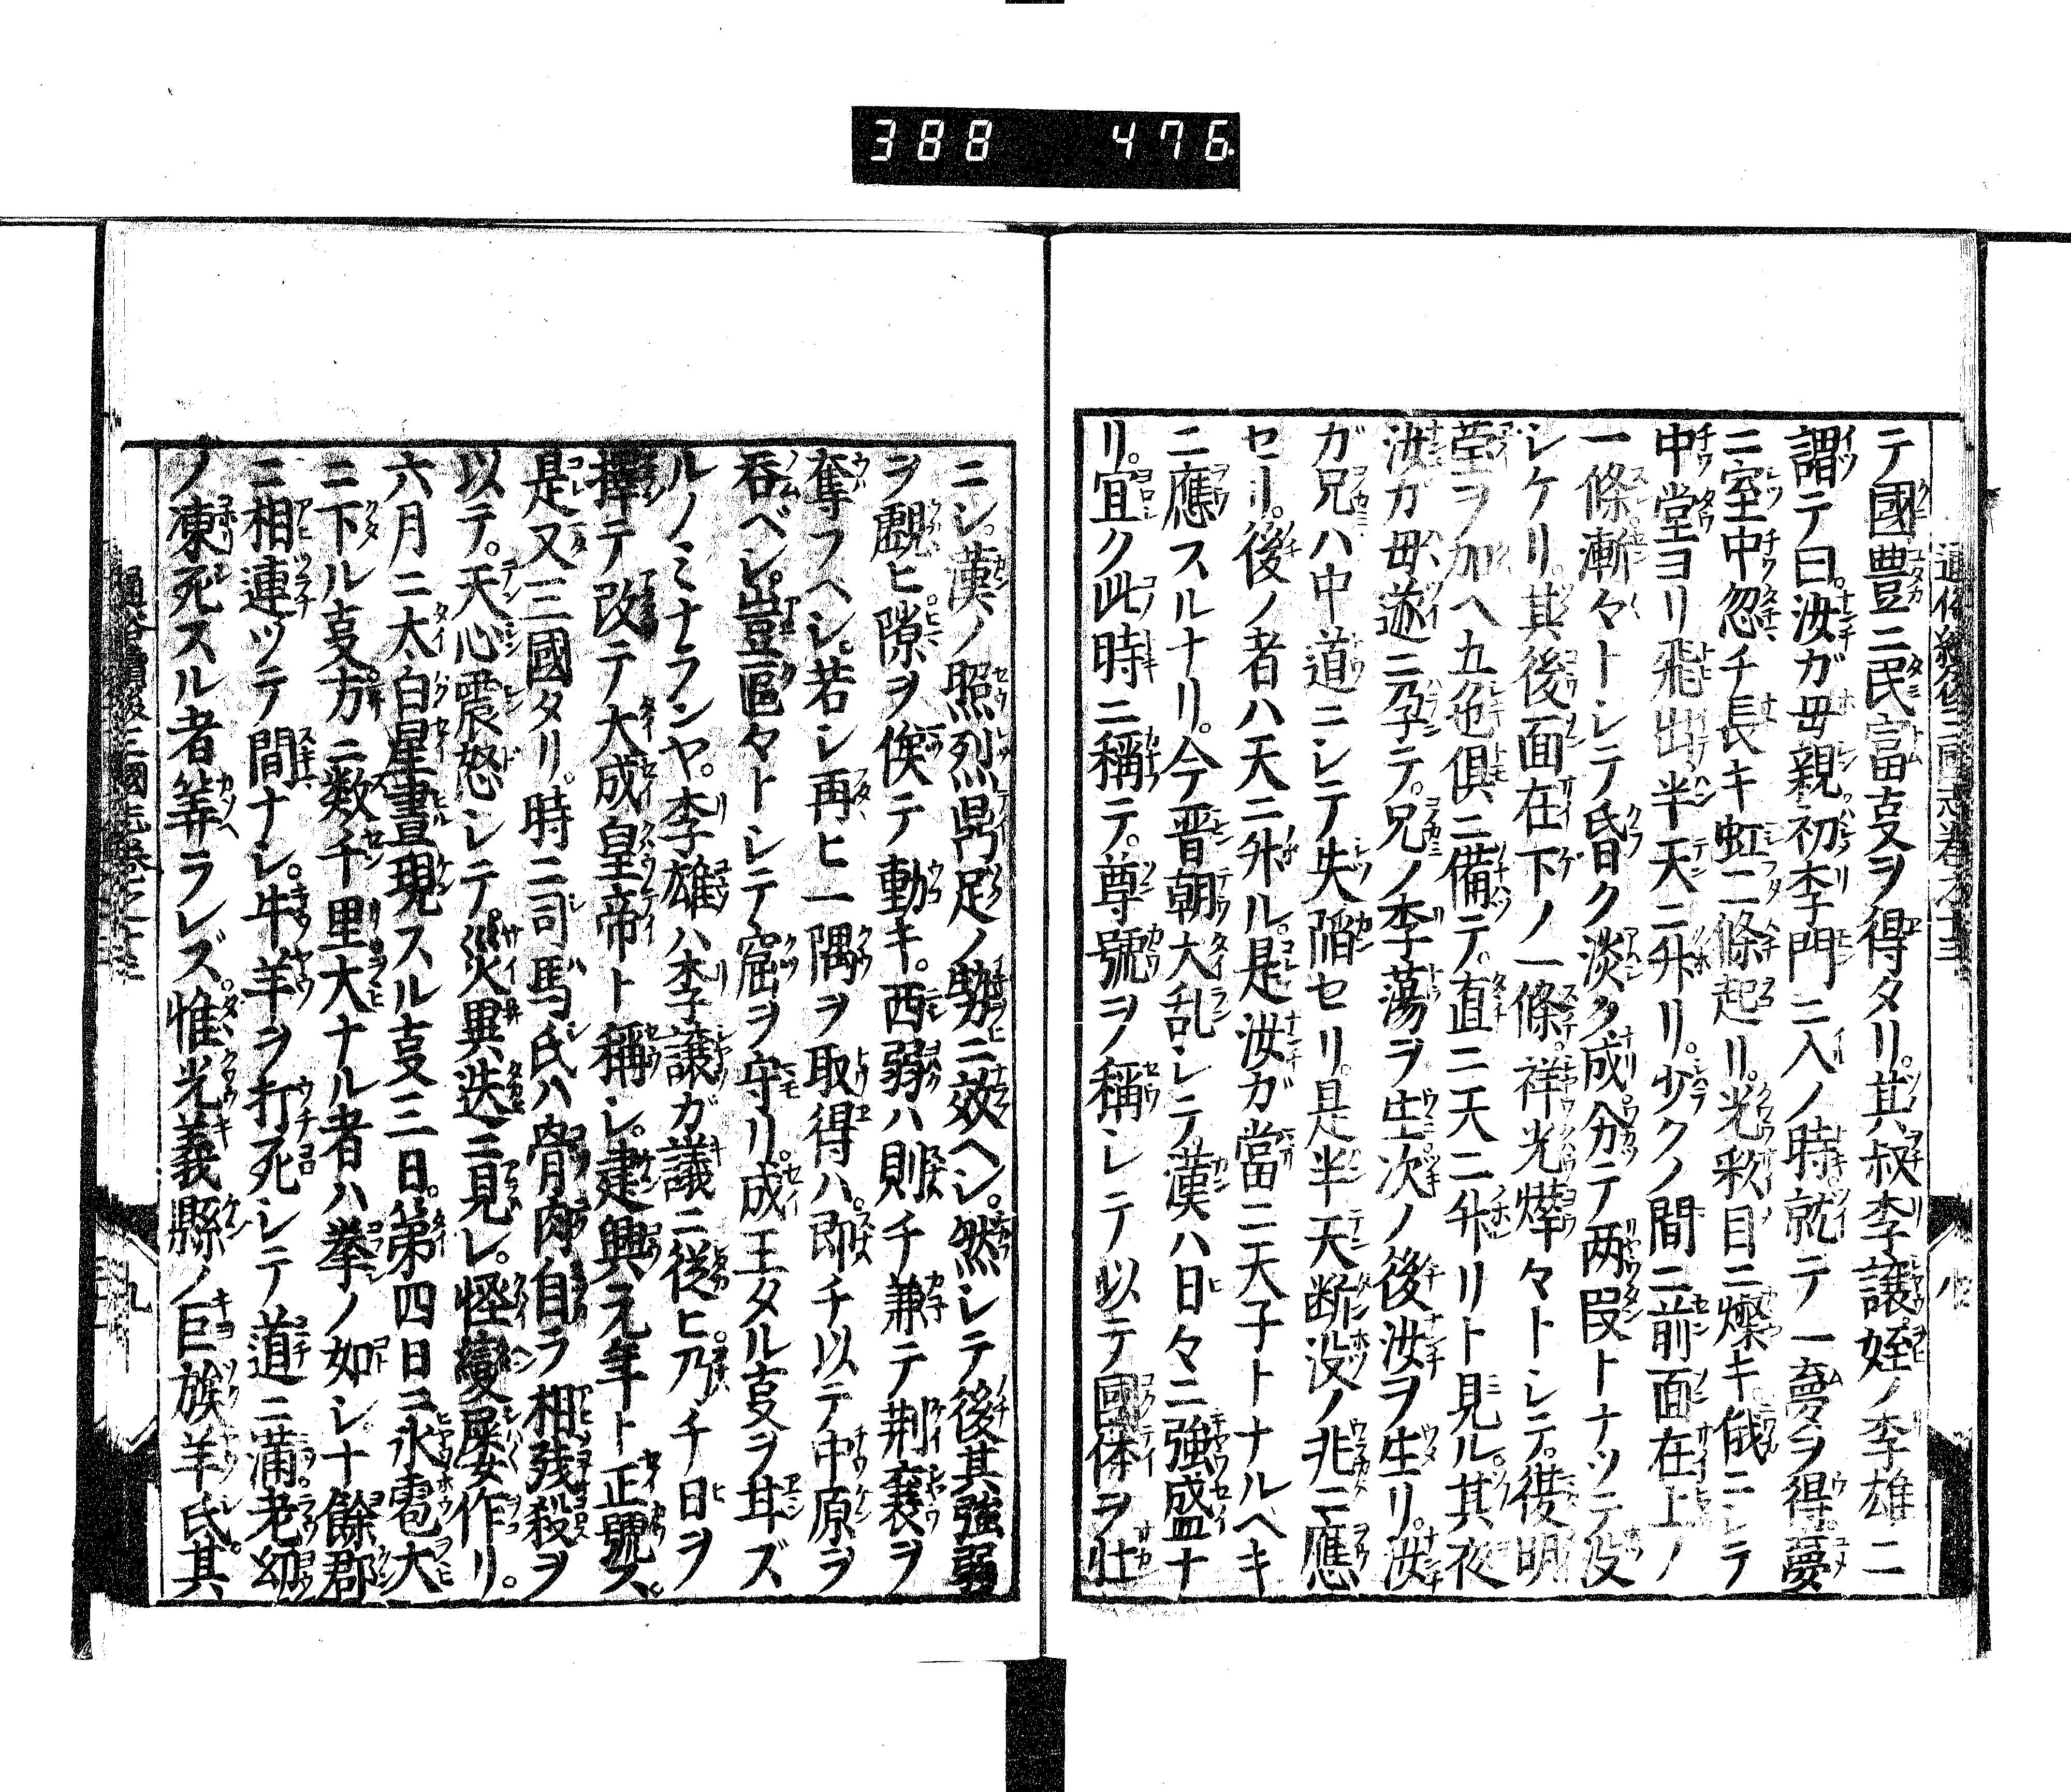 388 476
通俗續後三國志卷之十三
テ國豊ニ民富叓ヲ得タリ。其叔李讓。姪ノ李雄ニ
謂テ曰。汝ガ母親初李門ニ入ノ時。就テ一夢ヲ得。夢
ニ室中忽チ長キ虹二條起リ。光彩目ニ燦キ。俄ニシテ
中堂ヨリ飛出、半天ニ升リ。少クノ間ニ前面在上ノ
一條漸々トシテ昏ク淡ク成。分テ两段トナツテ没
シケリ。其後面在下ノ一條。祥光燁々トシテ。復明
瑩ヲ加ヘ五色俱ニ備テ。直ニ天ニ升リト見ル。其夜
汝ガ母遂ニ孕テ。兄ノ李蕩ヲ生。次ノ後汝ヲ生リ。汝
ガ兄ハ中道ニシテ失陷セリ。是半天断没ノ兆ニ應
セリ。後ノ者ハ天ニ升ル。是汝ガ當ニ天子トナルヘキ
ニ應スルナリ。今晋朝大乱シテ漢ハ日々ニ強盛ナ
リ。宜ク此時ニ稱テ。尊號ヲ稱シテ以テ國体ヲ壮
八
ニシ。漢ノ照烈鼎足ノ勢ニ效ヘシ。然シテ後其強弱
ヲ覷ヒ隙ヲ俟テ動キ。西弱ハ則チ兼テ荆襄ヲ
奪フヘシ。若シ再ヒ一隅ヲ取得ハ。即チ以テ中原ヲ
吞ベシ。豈區々トシテ窟ヲ守リ。成王タル叓ヲ甘ズ
ルノミナランヤ。李雄ハ李讓ガ議ニ從ヒ。乃チ日ヲ
擇テ改テ大成皇帝ト稱シ。建興元年ト正號ス。
是又三國タリ。時ニ司馬氏ハ骨肉自ラ相殘殺ヲ
以テ。天心震怒シテ。災異迭ニ見レ。怪變屡々作リ。
六月ニ太白星晝現スル叓三日。第四日ニ氷雹大
ニ下ル叓方ニ数千里大ナル者ハ拳ノ如シ。十餘郡
ニ相連ツテ間ナシ。牛羊ヲ打死シテ道ニ滿。老幼
ノ凍死スル者筭ラレズ。惟光義縣ノ巨族羊氏其
通俗續後三國志卷之十三
九